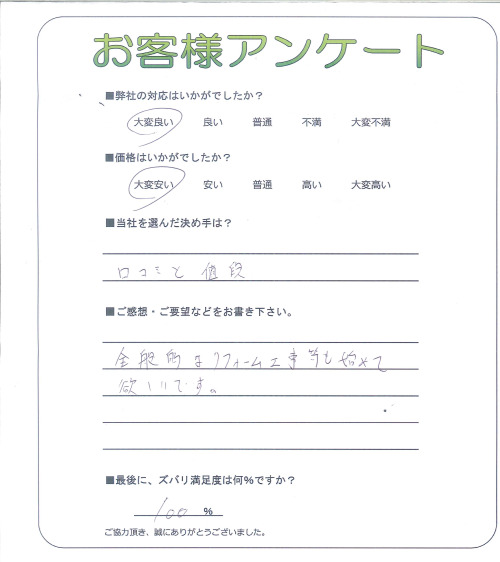 お客様アンケート
■弊社の対応はいかがでしたか?
大変良い 良い 普通 不満 大変不満
■価格はいかがでしたか?
大変安い 安い 普通 高い 大変高い
■当社を選んだ決め手は?
口コミと値段
■ご感想・ご要望などをお書き下さい。
全般的なリフォーム工事等も始めて
欲しいです。
■最後に、ズバリ満足度は何%ですか?
100 %
ご協力頂き、誠にありがとうございました。